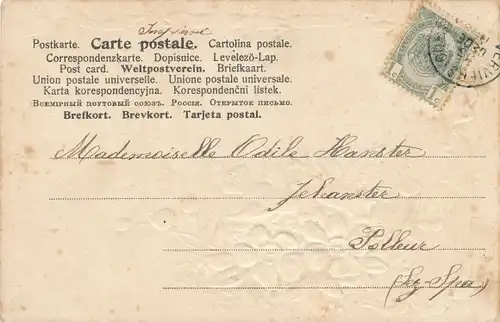 Imprimé
Postkarte. Carte postale. Cartolina postale.
Correspondenzkarte. Dopisnice. Levelező-Lap.
Post card. Weltpostverein. Briefkaart.
Union postale universelle. Unione postale universale.
Karta korespondencyjna. Korespondenční lístek.
Всемирный почтовый союзъ. Россія. Открытое письмо.
Brefkort. Brevkort. Tarjeta postal.
Mademoiselle Odile Hanster
Jehanster
Polleur
(Lez-Spa)